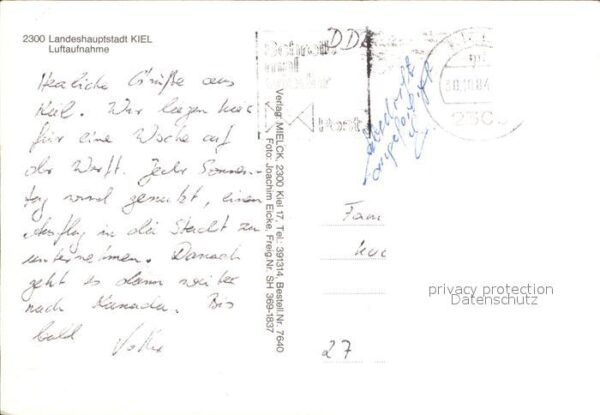 2300 Landeshauptstadt KIEL
Luftaufnahme
Herzliche Grüße aus
Kiel. Wir liegen hier
für eine Woche auf
der Werft. Jeder Sonnen-
tag wird genutzt, einen
Ausflug in die Stadt zu
unternehmen. Danach
geht es dann weiter
nach Kanada. Bis
bald Volker
Verlag: MIELCK, 2300 Kiel 17, Tel.: 391314, Bestell.Nr. 7640
Foto: Joachim Eicke, Freig.Nr. SH 369-1837
DDR
Schreib
mal
wieder
Post
.84
230
Fam
27
privacy protection
Datenschutz